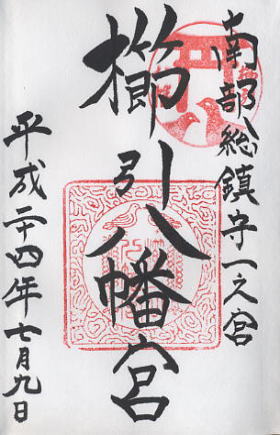 南部総鎮守一之宮
櫛引八幡宮
平成二十四年七月九日